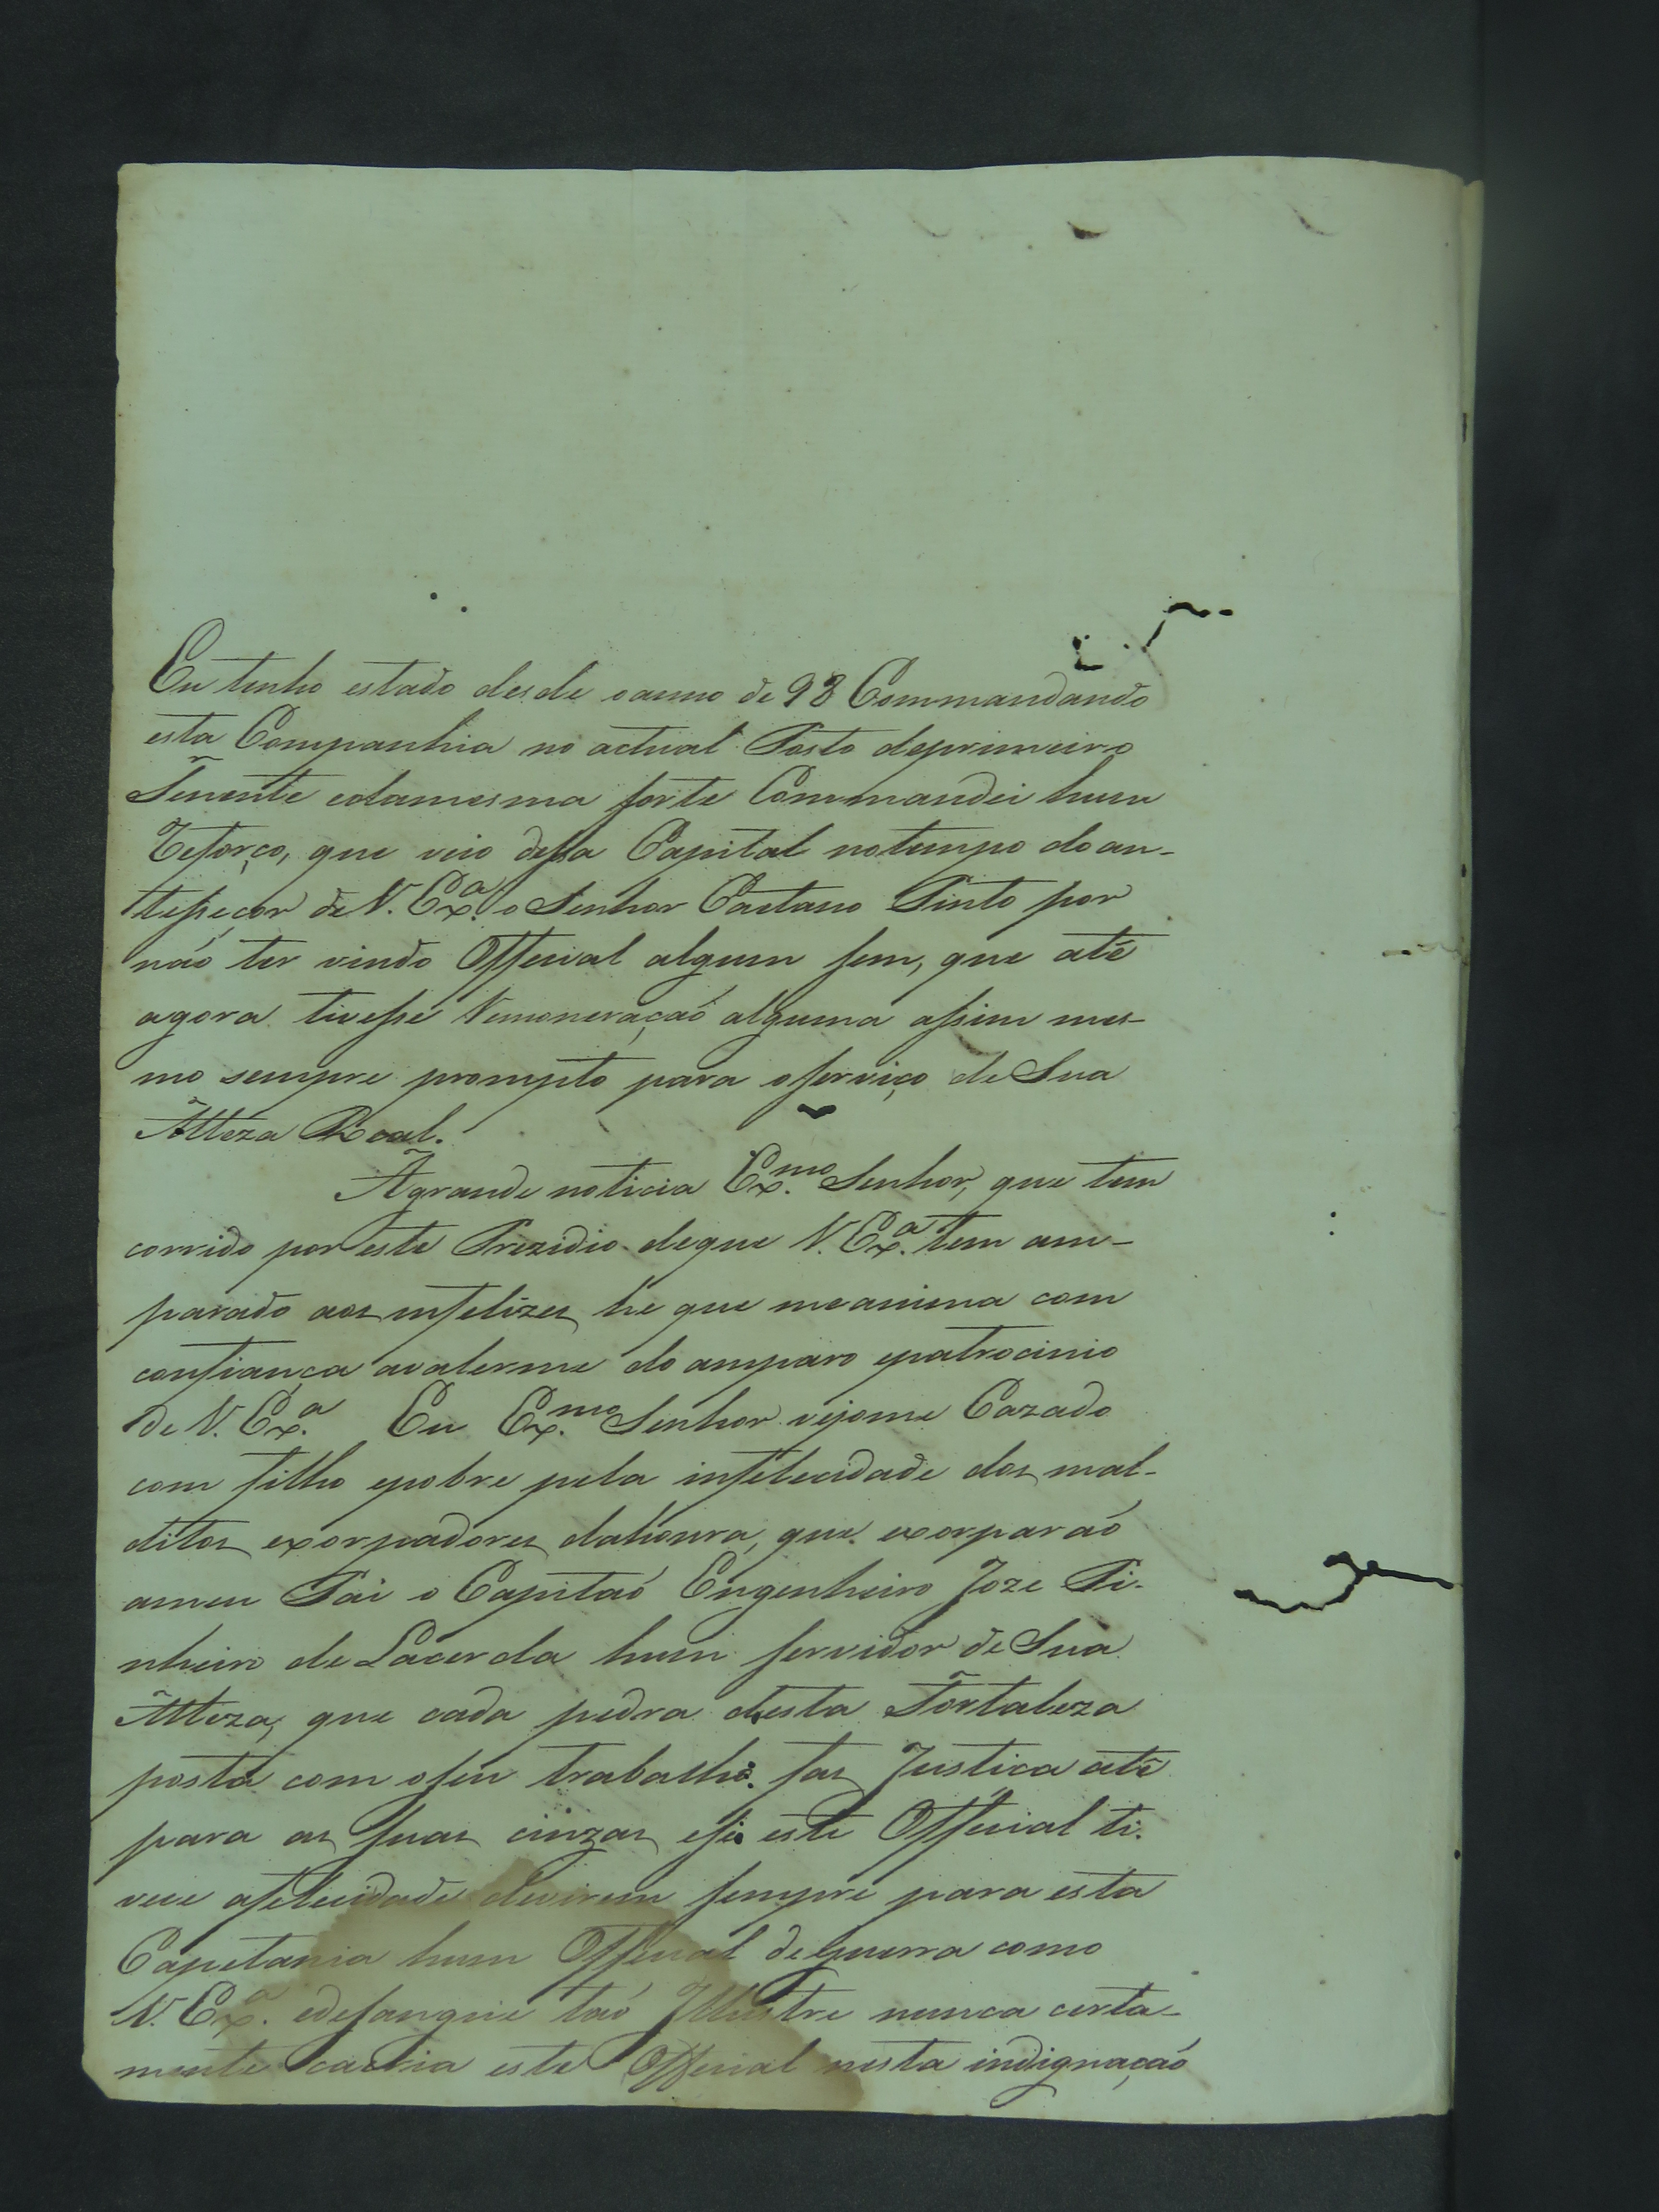 Eu tenho estado desde o anno de 98 Commandando
esta Companhia no actual Posto deprimeiro
Tenente edamesma sorte Commandei hum
Reforço, que veio dessa Capital notempo do an-
tesseçor de V. Ex.ª o Senhor Caetano Pinto por
não ter vindo Official algum sem, que até
agora tivesse Remoneração alguma assim mes-
mo sempre prompto para oserviço de Sua
Alteza Real.
Agrande noticia Ex.mo Senhor, que tem
corrido por este Prezidio deque V. Ex.ª tem am-
parado aos infelizes he que meanima com
confiança avalerme do amparo epatrocinio
de V. Ex.ª Eu Ex.mo Senhor vejome Cazado
com filho epobre pela infelecidade dos mal-
ditos exorpadores dahonra, que exorparaõ
ameu Pai o Capitaõ Engenheiro Joze Pi-
nheiro de Lacerda hum servidor de Sua
Alteza, que cada pedra desta Fortaleza
posta com oseu trabalho. fas Justica até
para as suas cinzas ese este Official ti-
vece afelecidade devirem sempre para esta
Capetania hum Official deguerra como
V. Ex.ª edesangue taõ Illustre nunca certa-
mente caeria este Official nesta indignação